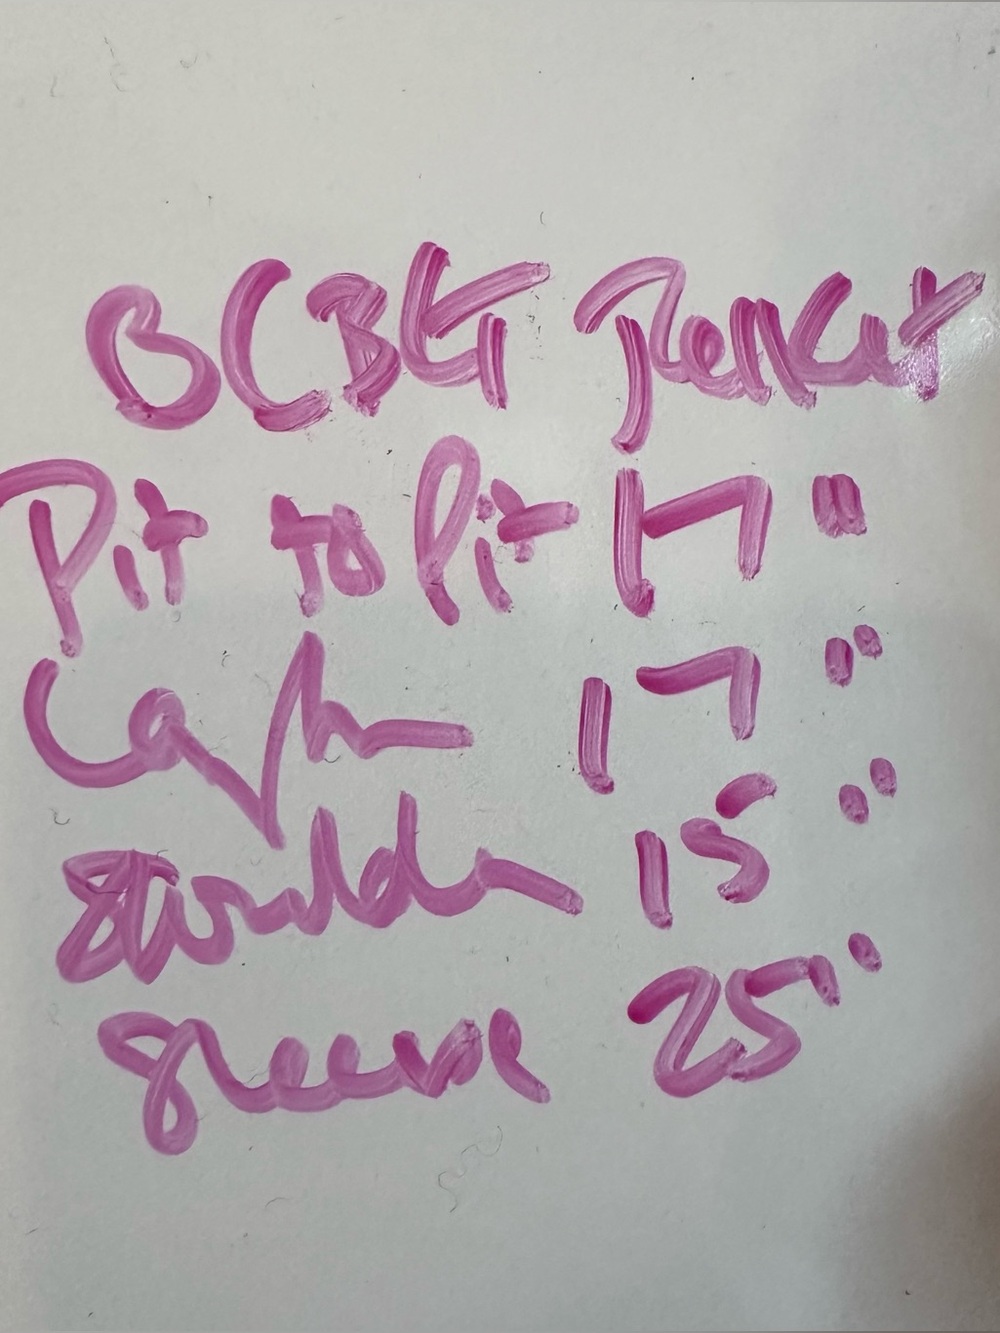 BCBG Jacket
Pit to Pit 17"
17"
Shoulder 15"
Sleeve 25"